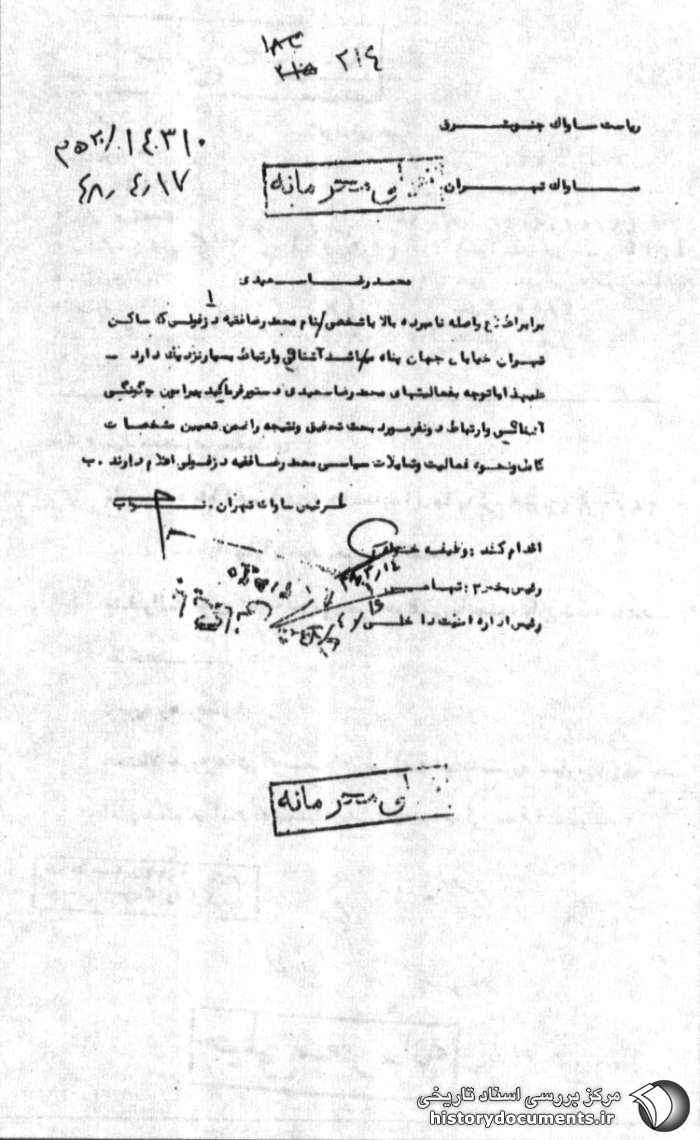 ۲۱۴
ریاست ساواک جنوبشرق
۱۴۳۱۰/۲۰ھ۳
ساواک تهران
محرمانه
۴۸٫۴٫۱۷
محمدرضا سعیدی
برابر اطلاع واصله نامبرده بالا با شخصی بنام محمدرضا فقیه دزفولی که ساکن
تهران خیابان جهان پناه میباشد آشنائی وارتباط بسیار نزدیک دارد -
علیهذا باتوجه بفعالیتهای محمدرضا سعیدی دستور فرمائید پیرامون چگونگی
آشنائی وارتباط دونفر مورد بحث تحقیق ونتیجه را ضمن تعیین مشخصات
کامل ونحوه فعالیت وتمایلات سیاسی محمدرضا فقیه دزفولی اعلام دارند . ب
رئیس ساواک تهران . نواب
اقدام کننده : وظیفه
رئیس بخش ۳ :
رئیس اداره امنیت داخلی
محرمانه
مرکز بررسی اسناد تاریخی
historydocuments.ir